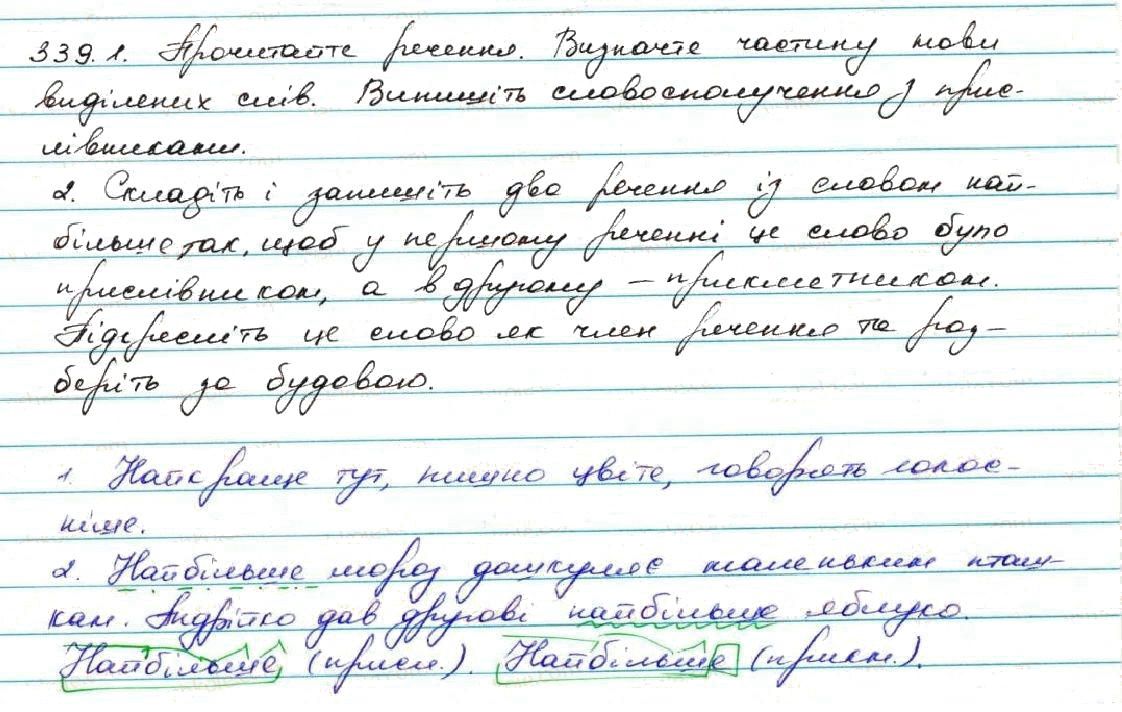 339. 1. Прочитайте речення. Визначте частину мови
виділених слів. Випишіть словосполучення з прис-
лівниками.
2. Складіть і запишіть два речення із словом най-
більше так, щоб у першому реченні це слово було
прислівником, а в другому – прикметником.
Підкресліть це слово як член речення та роз-
беріть за будовою.
1. Найкраще тут, пишно цвіте, говорять голос-
ніше.
2. Найбільше мороз дошкуляє маленьким пташ-
кам. Андрійко дав другові найбільше яблуко.
Найбільше (присл.). Найбільше (прикм.).